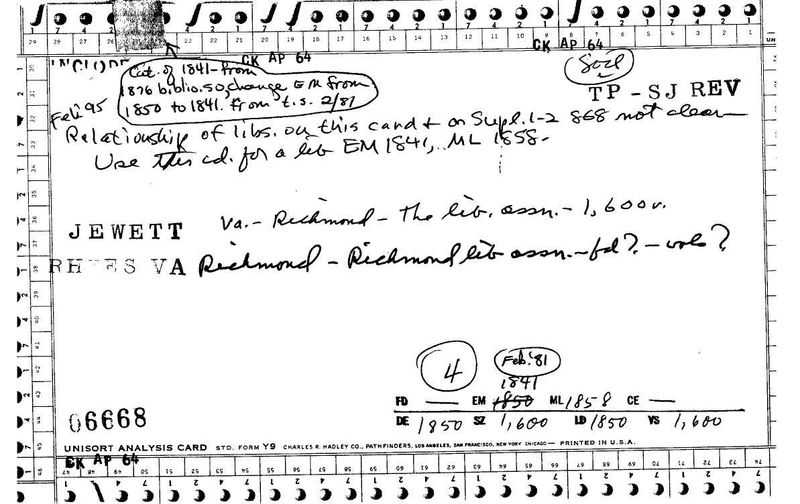 CK AP 64
CK AP 64
Socl
TP - SJ REV
Cat. of 1841 - from
1876 biblio. so change EM from
1850 to 1841. from t.s. 2/81
Feb '95
Relationship of libs. on this card & on Supl. 1-2 868 not clear -
Use this cd. for a lib EM 1841, ML 1858 -
JEWETT Va. - Richmond - The lib. assn. - 1,600 v.
RHEES VA Richmond - Richmond lib assn. - fd? - vols?
4
Feb. '81
1841
FD — EM 1850 ML 1858 CE —
DE 1850 SZ 1,600 LD 1850 VS 1,600
06668
UNISORT ANALYSIS CARD STD. FORM Y9 CHARLES R. HADLEY CO., PATHFINDERS, LOS ANGELES, SAN FRANCISCO, NEW YORK CHICAGO — PRINTED IN U.S.A.
CK AP 64